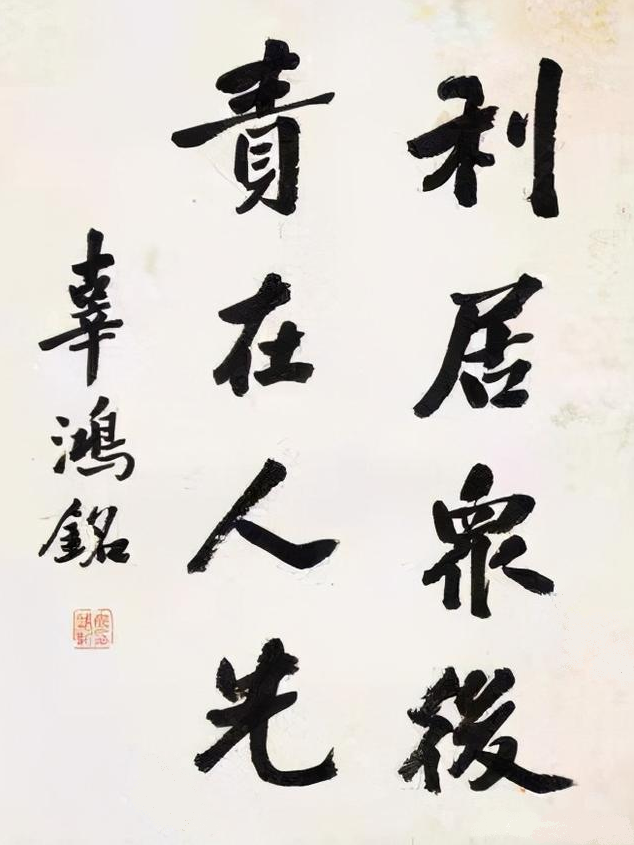 利居衆後
責在人先
辜鴻銘